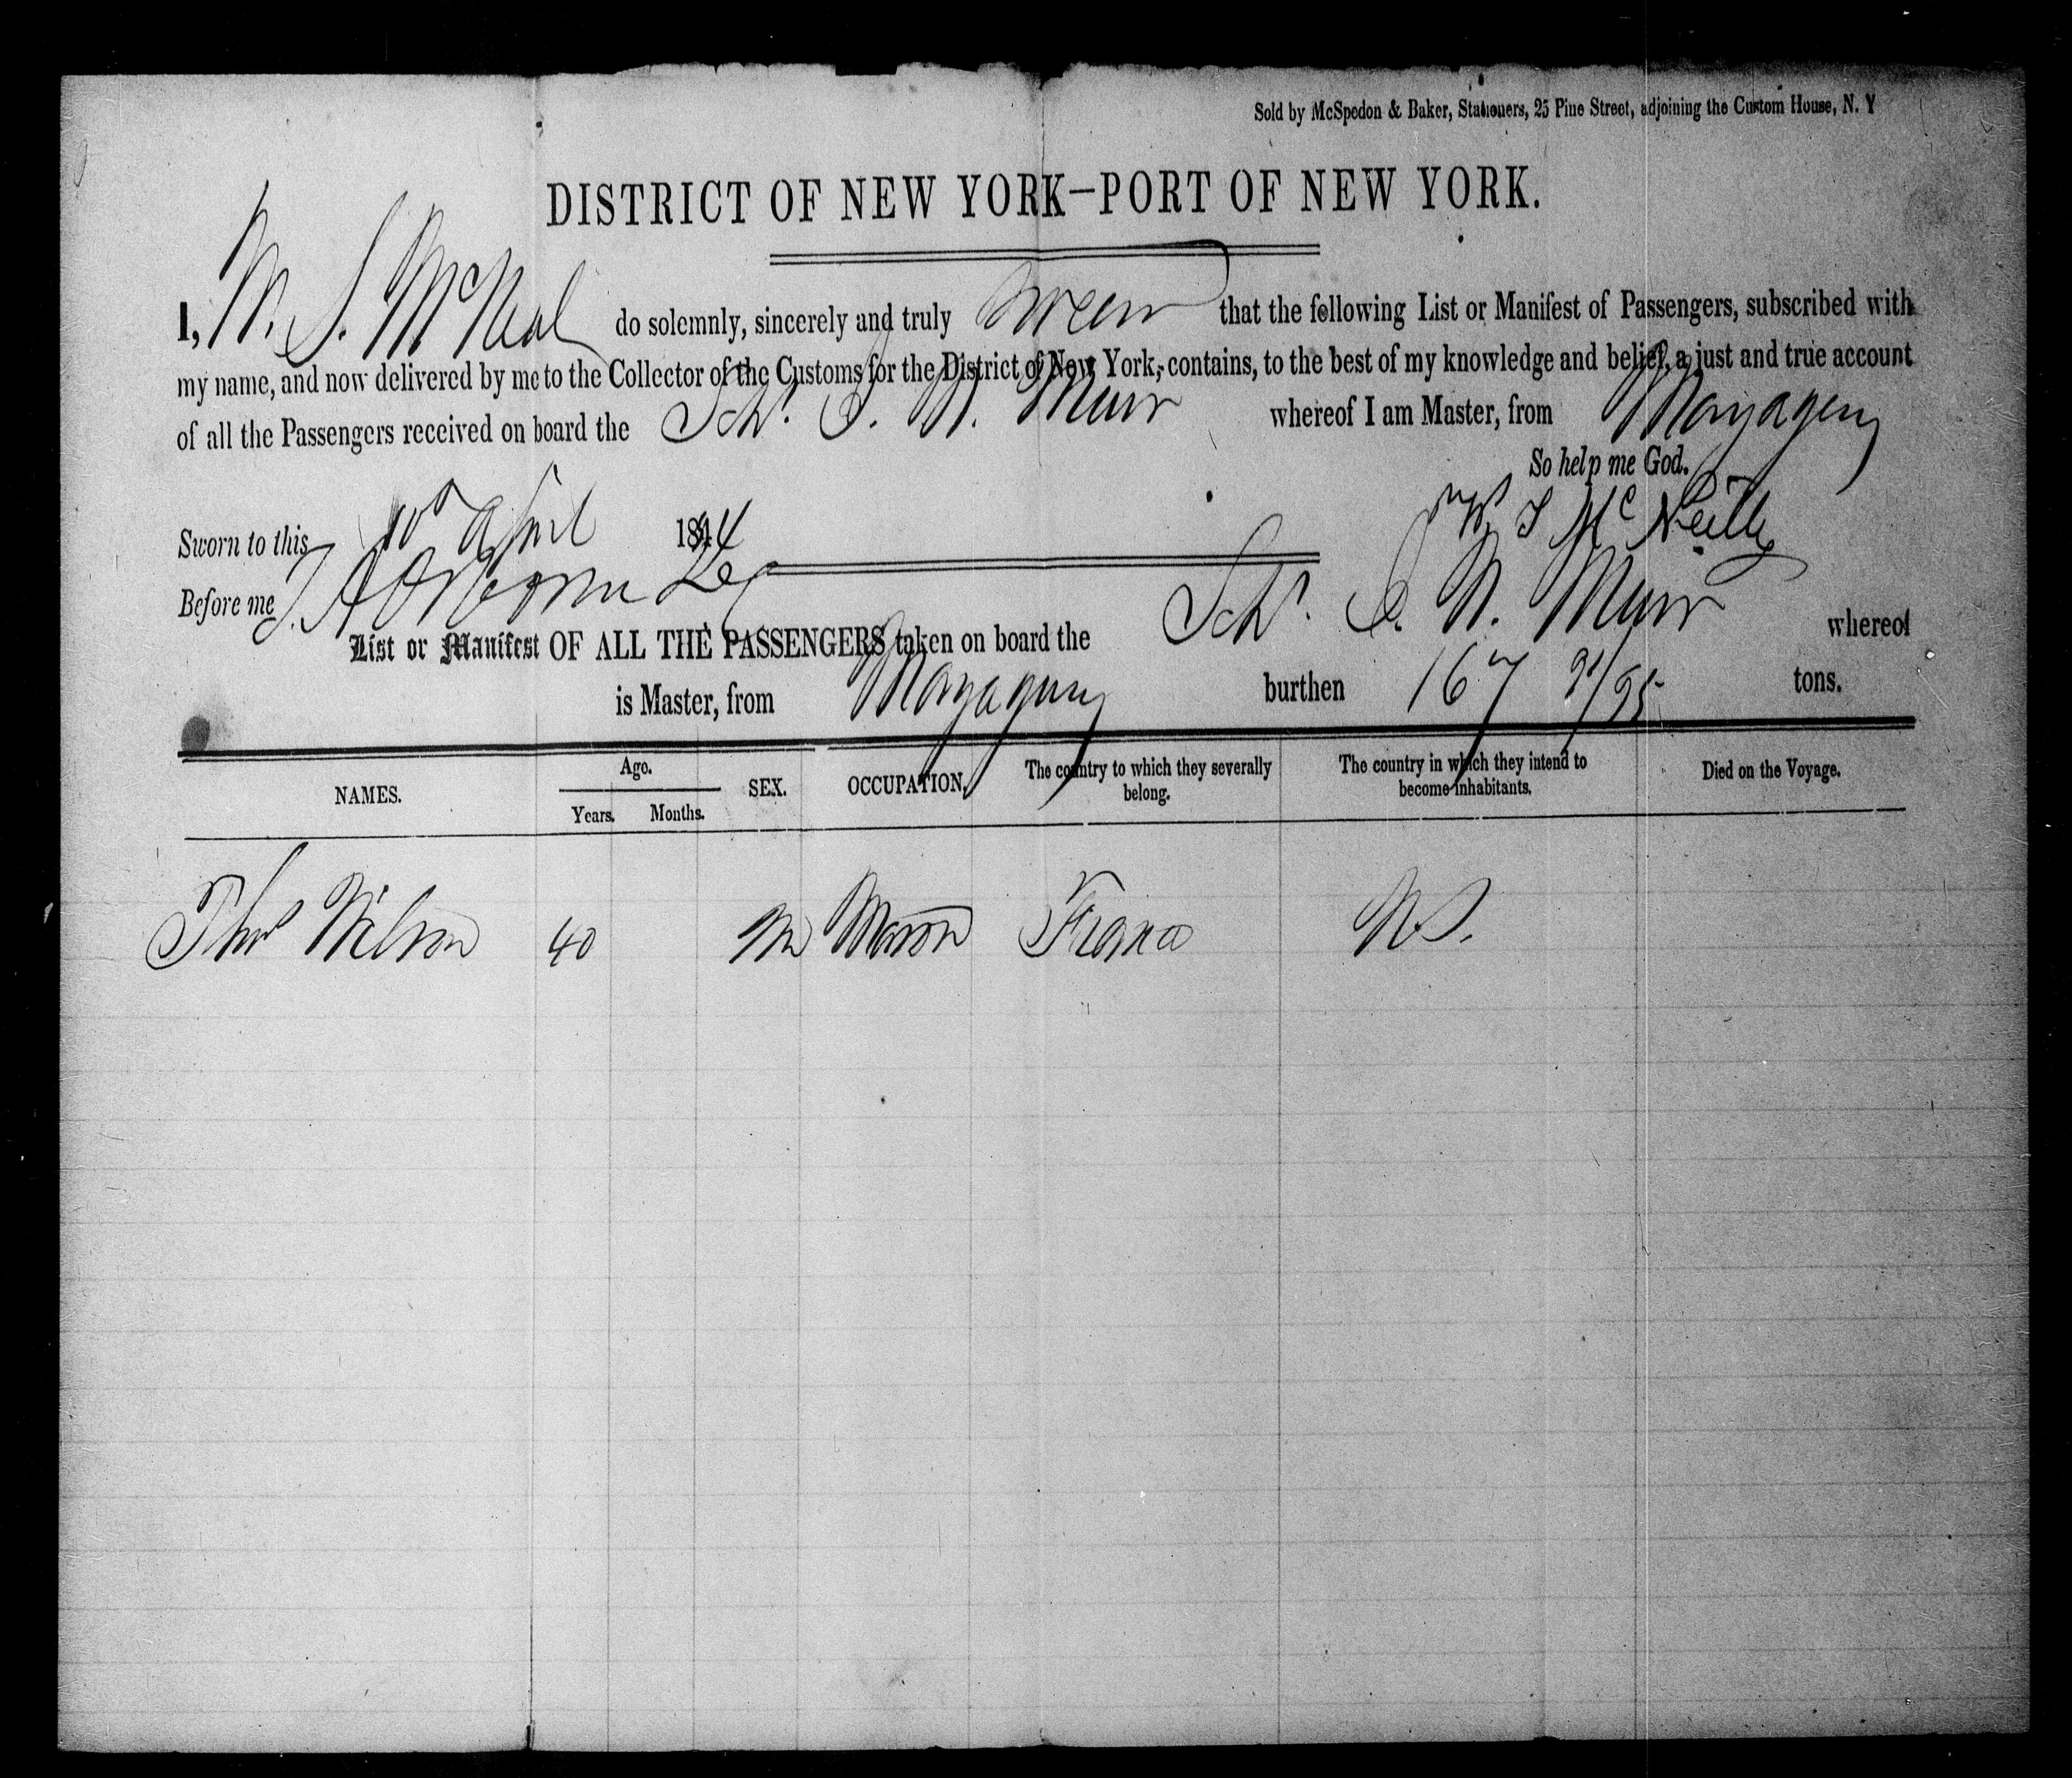 Sold by McSpedon & Baker, Stationers, 25 Pine Street, adjoining the Custom House, N. Y
DISTRICT OF NEW YORK—PORT OF NEW YORK.
I, W. S. McNeal do solemnly, sincerely and truly swear that the following List or Manifest of Passengers, subscribed with
my name, and now delivered by me to the Collector of the Customs for the District of New York, contains, to the best of my knowledge and belief, a just and true account
of all the Passengers received on board the Schr. J. N. Muir whereof I am Master, from Mayaguez
So help me God.
Sworn to this 10th April 1854 W S McNeill
Before me
List or Manifest OF ALL THE PASSENGERS taken on board the Schr. J. N. Muir whereof
is Master, from Mayaguez burthen 167 91/95 tons.
NAMES. Age. Years. Months. SEX. OCCUPATION. The country to which they severally belong. The country in which they intend to become inhabitants. Died on the Voyage.
Thos Wilson 40 M Mason France U.S.